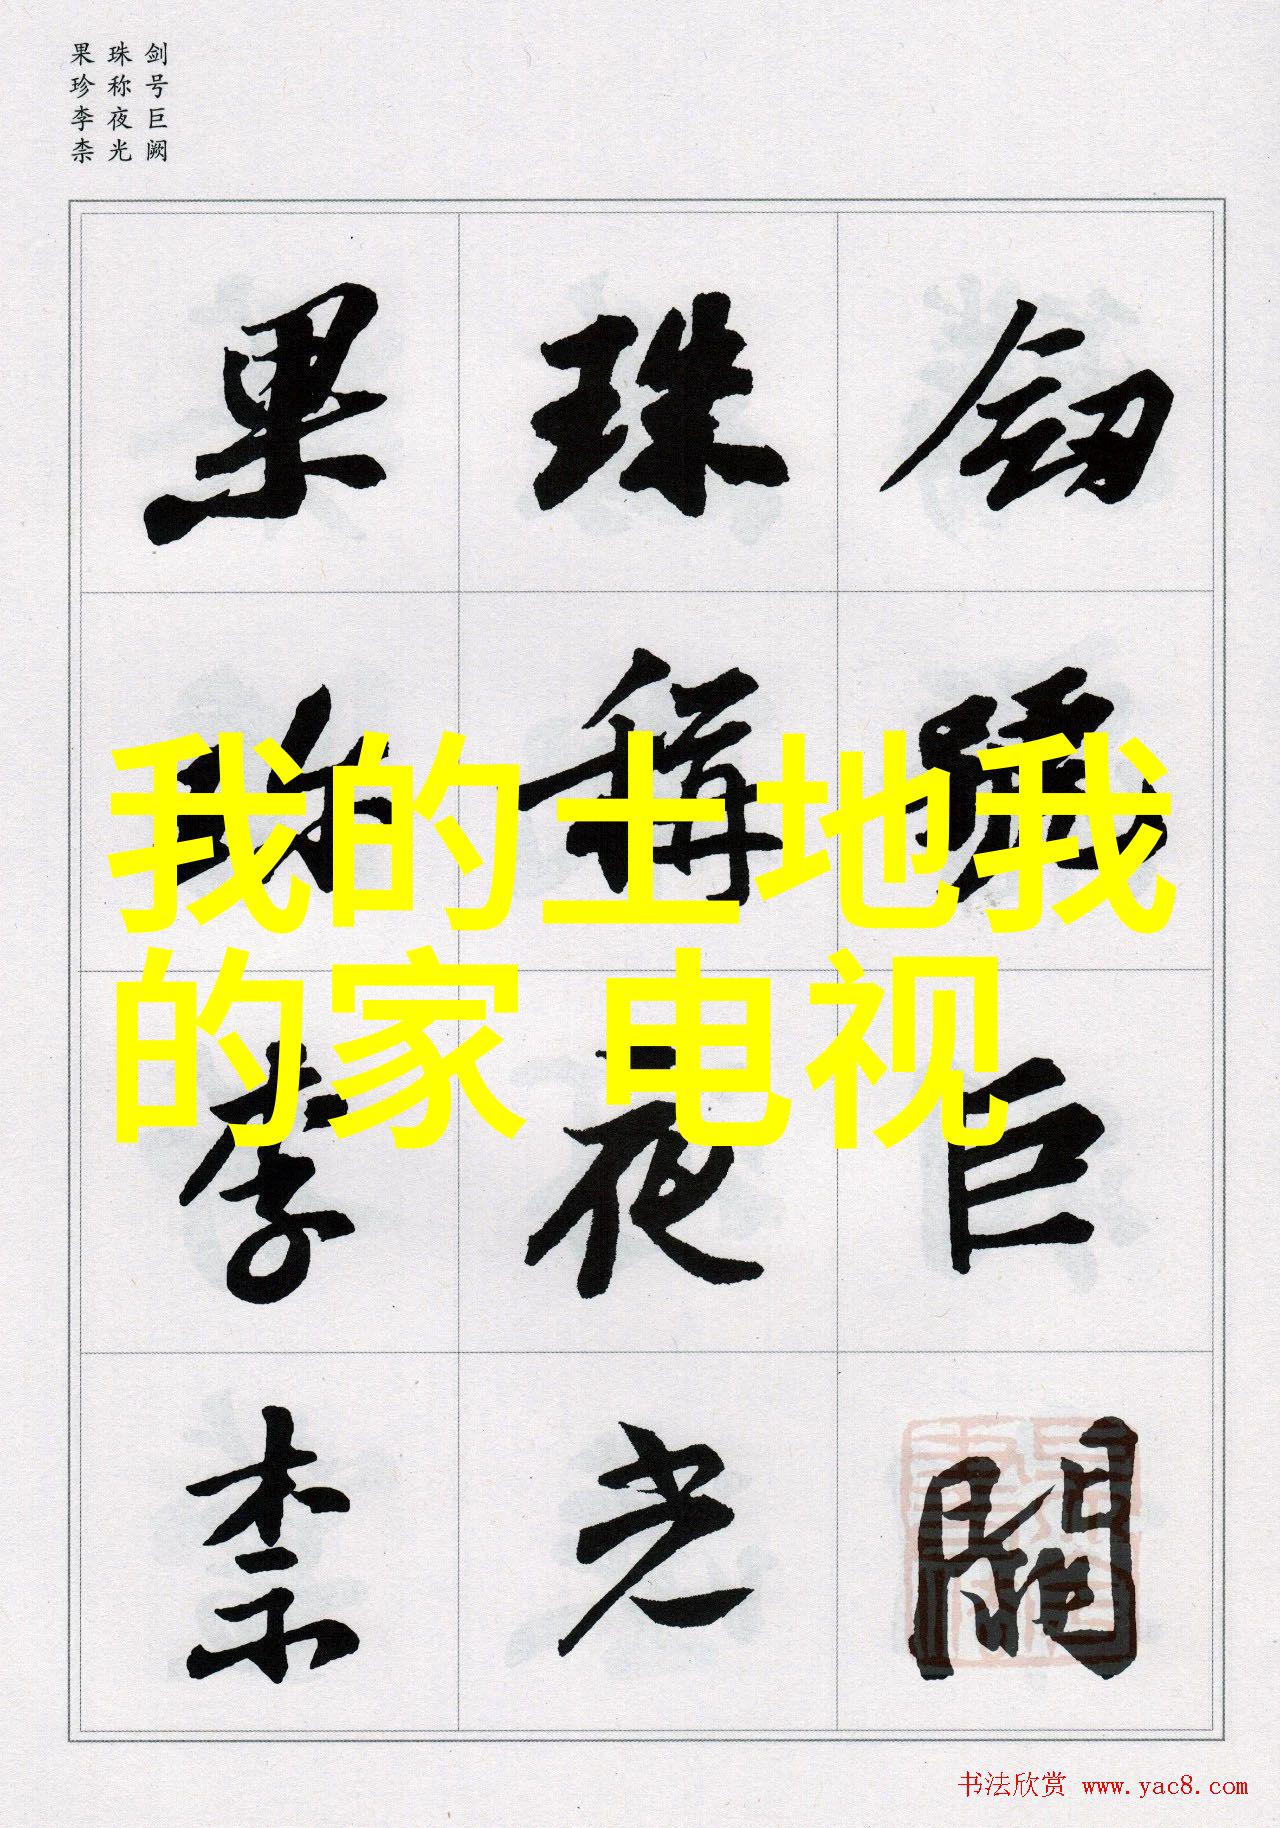 剑号巨阙
珠称夜光
果珍李柰
劍號巨闕
珠稱夜光
果珍李柰
我的土地我
的家 电视
书法欣赏 www.yac8.com